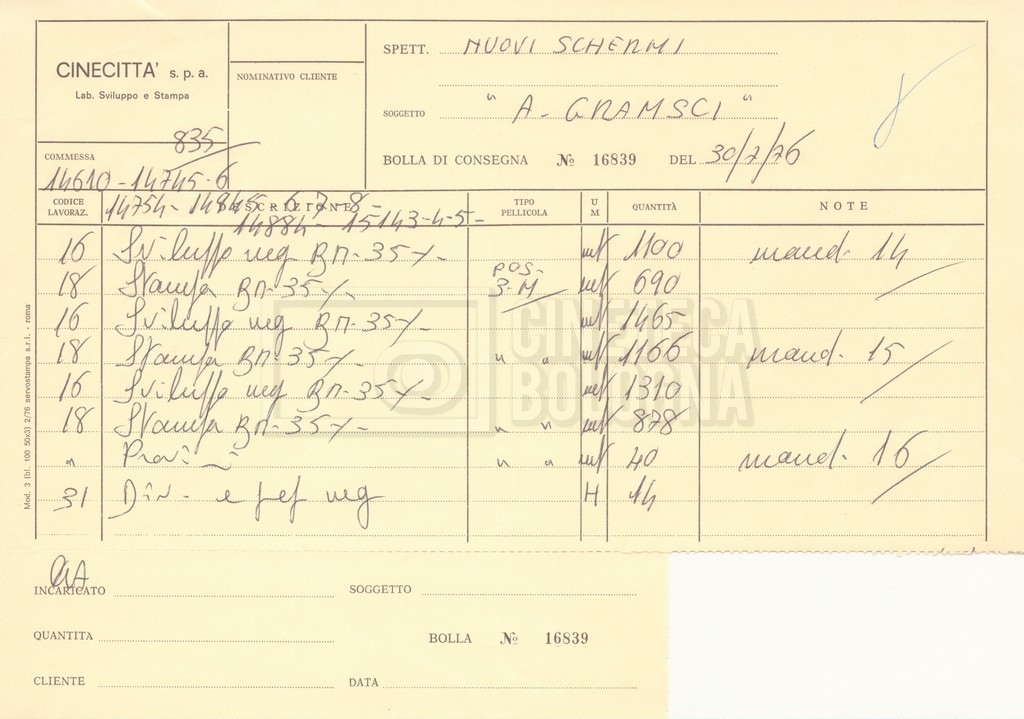 CINECITTA' s. p. a.
Lab. Sviluppo e Stampa
NOMINATIVO CLIENTE
SPETT. NUOVI SCHERMI
SOGGETTO "A. GRAMSCI"
835
COMMESSA
14610-14745-6
BOLLA DI CONSEGNA № 16839 DEL 30/7/76
14754- 14845-6-7-8-
14884- 15143-4-5-
CODICE LAVORAZ. DESCRIZIONE TIPO PELLICOLA U M QUANTITÀ NOTE
16 Sviluppo neg BN-35 mt 1100 mand. 14
18 Stampa BN-35 POS- 3-M mt 690
16 Sviluppo neg BN-35 mt 1465
18 Stampa BN-35 " " mt 1166 mand. 15
16 Sviluppo neg BN-35 mt 1310
18 Stampa BN-35 " " mt 878
" Provi " " mt 40 mand. 16
31 Div- e neg H 14
CINETECA
BOLOGNA
Mod. 3 (bl. 100 50x3) 2/76 servostampa s.r.l. - roma
INCARICATO
SOGGETTO
QUANTITA
BOLLA № 16839
CLIENTE
DATA